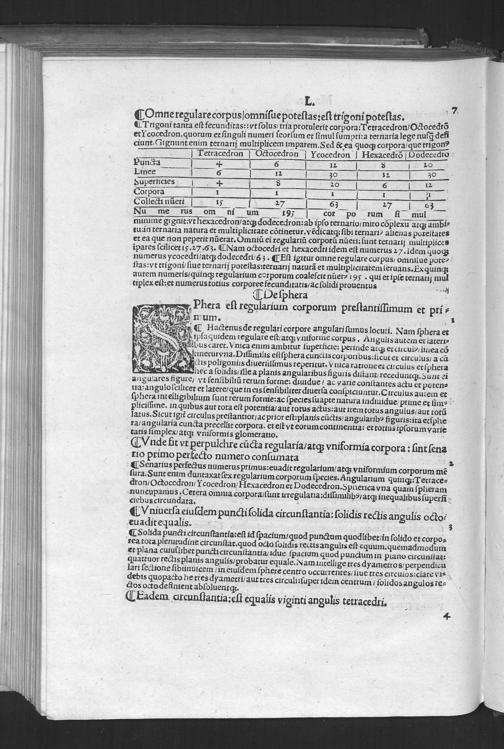 L.
7
¶Omne regulare corpus/omnisue potestas:est trigoni potestas.
¶Trigoni tanta est fecunditas::vt solus/tria protulerit corpora:Tetracedron/Octocedrō
et Ycocedron.quorum et singuli numeri seorsum et simul sumpti:a ternaria lege nusq̄ defi
ciunt.Gignunt enim ternarij multiplicem imparem.Sed & ea quoq; corpora/que trigon⁹
Tetracedron | Octocedron | Ycocedron | Hexacedrō | Dodecedrō
Puncta | 4 | 6 | 12 | 8 | 20
Linee | 6 | 12 | 30 | 12 | 30
Superficies | 4 | 8 | 20 | 6 | 12
Corpora | 1 | 1 | 1 | 1 | 1
Collecti nūeri | 15 | 27 | 63 | 27 | 63
Nu me rus om ni um 195 cor po rum si mul
minime gignit:vt hexacedron/atq; dodecedron:ab ipso ternario:miro cōplexu atq; ambi/
tu:in ternaria natura et multiplicitate cōtinetur.vēdicatq; sibi ternari⁹ alienas potestates
et ea que non peperit nūerat.Omniū ei regulariū corporū nūeri:sunt ternarij multiplices
ipares scilicet 15.27.63. ¶Nam octocedri et hexacedri idem est numerus 27.idem quoq;
numerus ycocedri/atq; dodecedri/63. ¶Est igitur omne regulare corpus/omnisue pote/
stas:vt trigoni/siue ternarij potestas:ternarij naturā et multiplicitatem seruans.Ex quinq;
autem numeris:quinq; regularium corporum coalescit nūer⁹195. qui et ipse ternarij mul
tiplex est:et numerus totius corporee fecunditatis/ac solidi prouentus
¶De sphera
SPhera est regularium corporum prestantissimum et pri/
mum. 1
¶ Hactenus de regulari corpore angulari sumus locuti. Nam sphera et
ipsa quidem regulare est:atq; vniforme corpus. Angulis autem et lateri=
bus caret.Vnica enim ambitur superficie: perinde atq; et circul⁹/linea cō
tineturvna.Dissimilis est sphera cunctis corporibus:sicut et circulus/a cū
ctis poligoniis:diuersissimus reperitur.Vnica ratione et circulus et sphera
hec a solidis/ille a planis angularibus figuris distant:receduntq;.Sunt ei
angulares figure/vt sensibiliū rerum forme: diuidue/ac varie constantes actu et poten=
tia:angulo scilicet et latere/que in eis sensibiliter diuersa conspiciuntur.Circulus autem et
sphera intelligibilium sunt rerum forme:ac species suapte natura indiuidue/prime et sim=
plicissime.in quibus aut tota est potentia/aut totus actus:aut item totus angulus/aut totū
latus.Sicut igit̄ circulus prestantior/ac prior est:planis cūctis/angularib⁹ figuris:ita et sphe
ra/angularia cuncta precellit corpora.et est vt eorum continentia:et totius ipsorum varie
tatis simplex/atq; vniformis glomeratio.
¶Vnde fit vt perpulchre cūcta regularia/atq; vniformia corpora:sint sena
rio primo perfecto numero consumata 2
¶Senarius perfectus numerus primus:euadit regularium/atq; vniformium corporum mē
sura.Sunt enim duntaxat sex regularium corporum species.Angularium quinq;:Tetrace=
dron/Octocedron/Ycocedron/Hexacedron et Dodecedron.Spherica vna quam spheram
nuncupamus.Cetera omnia corpora/sunt irregularia:dissimilib⁹/atq; inequalibus superfi
ciebus circundata.
¶Vniuersa eiusdem puncti solida circunstantia:solidis rectis angulis octo/
euadit equalis. 3
¶Solida puncti circunstantia:est id spacium/quod punctum quodlibet:in solido et corpo=
rea tota plenitudine circunstat.quod octo solidis rectis angulis est equum.quemadmodum
et plana cuiuslibet puncti circunstantia/idue spacium quod punctum in plano circunstat:
quattuor rectis planis angulis/probatur equale.Nam intellige tres dyametros/perpendicu
lari sectione sibimiuicem:in eiusdem sphere centro occurrentes/siue tres circulos:clare vi=
debis quopacto he tres dyametri/aut tres circuli:super idem centrum/solidos angulos re=
ctos octo definient absoluentq;.
¶Eadem circunstantia:est equalis viginti angulis tetracedri.
4